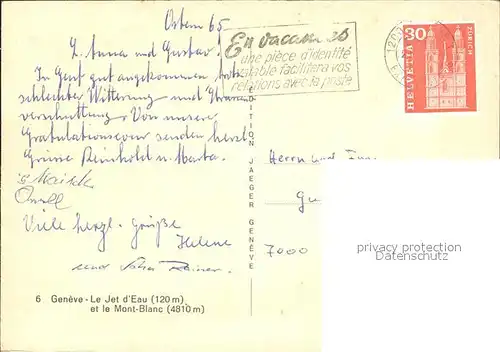 Ostern 65
L. Anna und Gustav!
In Genf gut angekommen trotz
schlechter Witterung und
verschuttung. Von unserer
Gratulationscour senden herzl.
Grüsse Reinhold u. Marta.
Viele herzl. Grüße
Helene
und Rainer.
6 Genève - Le Jet d'Eau (120 m)
et le Mont-Blanc (4810 m)
En vacances
une pièce d'identité
valable facilitera vos
relations avec la poste
HELVETIA
30
ZÜRICH
EDITION JAEGER GENÈVE
Herrn und
7000
privacy protection
watermark